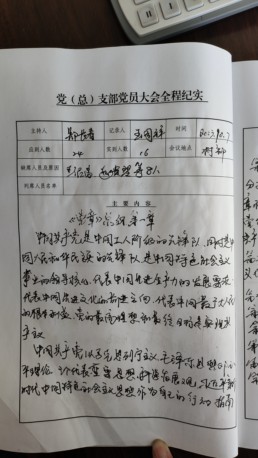 党（总）支部党员大会全程纪实
主持人 记录人 时间
应到人数 24 实到人数 16 会议地点 村部
缺席人员及原因 等8人
列席人员名单
主 要 内 容
《党章》总纲第一章
中国共产党是中国工人阶级的先锋队，同时是中
国人民和中华民族的先锋队，是中国特色社会主义
事业的领导核心，代表中国先进生产力的发展要求，
代表中国先进文化的前进方向，代表中国最广大人民
的根本利益，党的最高理想和最终目标是实现共
产主义
中国共产党以马克思列宁主义、毛泽东思想、邓小
平理论、三个代表重要思想、科学发展观、习近平新
时代中国特色社会主义思想作为自己的行动指南